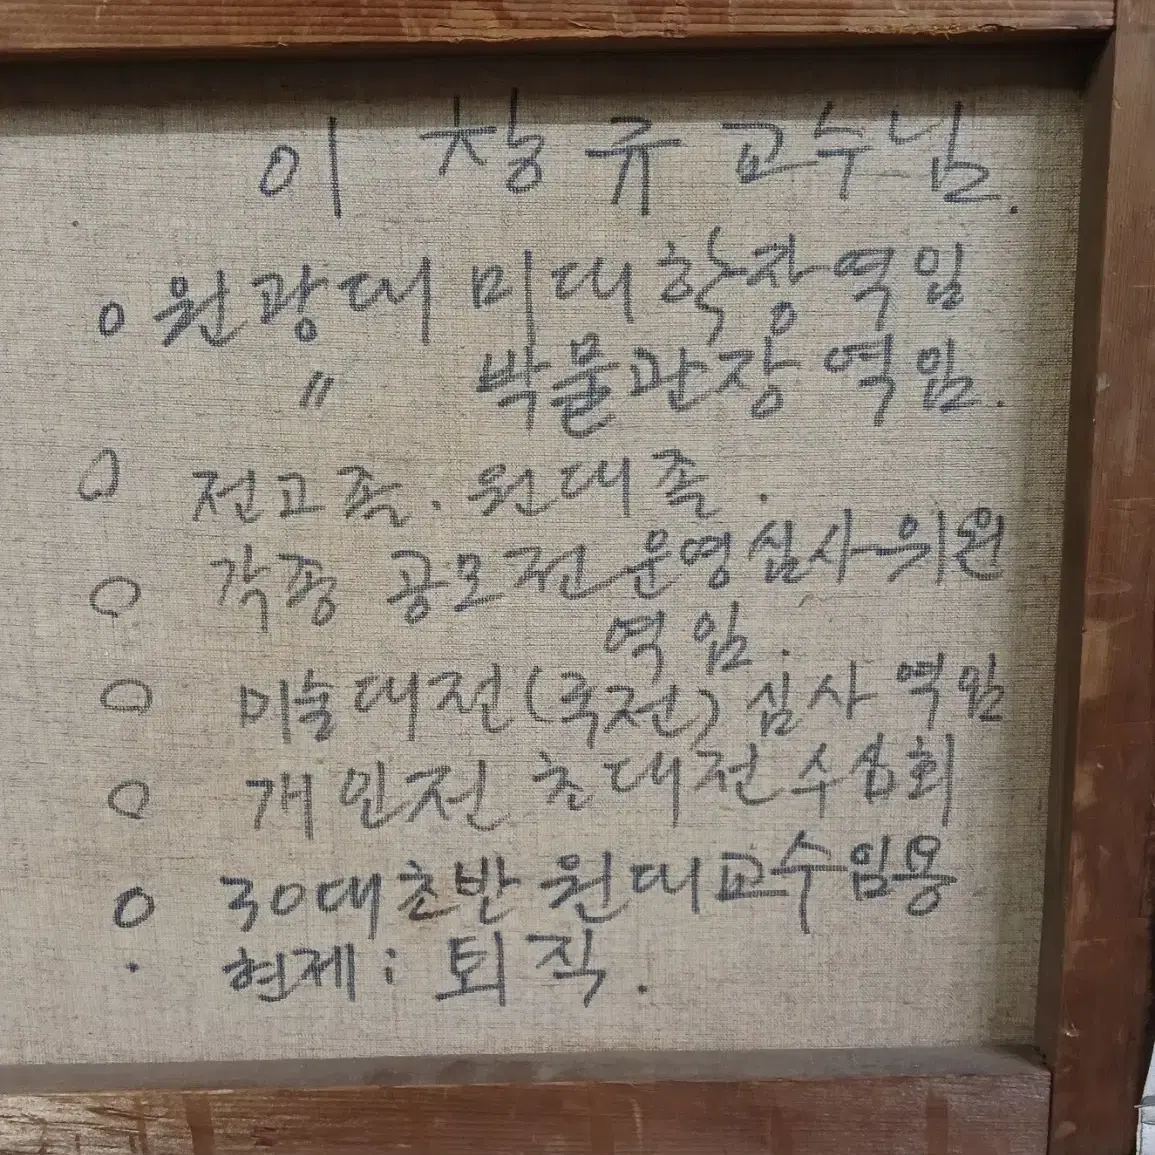 이창규 교수님.
o 원광대 미대 학장 역임
〃 박물관장 역임.
o 전고졸. 원대졸.
o 각종 공모전 운영 심사위원
역임.
o 미술대전(국전) 심사 역임
o 개인전 초대전 수십회
o 30대 초반 원대 교수 임용
· 현제: 퇴직.